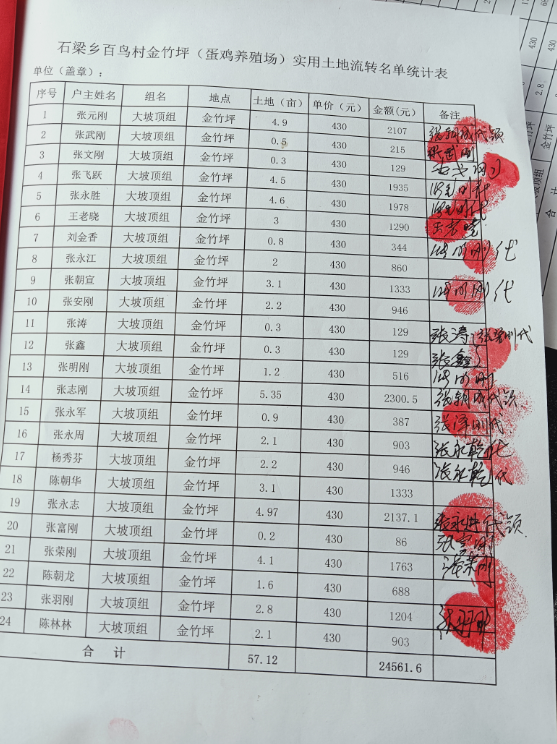 石梁乡百鸟村金竹坪（蛋鸡养殖场）实用土地流转名单统计表
单位（盖章）：
序号 户主姓名 组名 地点 土地（亩） 单价（元） 金额(元) 备注
1 张元刚 大坡顶组 金竹坪 4.9 430 2107
2 张武刚 大坡顶组 金竹坪 0.5 430 215
3 张文刚 大坡顶组 金竹坪 0.3 430 129
4 张飞跃 大坡顶组 金竹坪 4.5 430 1935
5 张永胜 大坡顶组 金竹坪 4.6 430 1978
6 王老晓 大坡顶组 金竹坪 3 430 1290
7 刘金香 大坡顶组 金竹坪 0.8 430 344
8 张永江 大坡顶组 金竹坪 2 430 860
9 张朝宣 大坡顶组 金竹坪 3.1 430 1333
10 张安刚 大坡顶组 金竹坪 2.2 430 946
11 张涛 大坡顶组 金竹坪 0.3 430 129 张涛
12 张鑫 大坡顶组 金竹坪 0.3 430 129 张鑫
13 张明刚 大坡顶组 金竹坪 1.2 430 516
14 张志刚 大坡顶组 金竹坪 5.35 430 2300.5
15 张永军 大坡顶组 金竹坪 0.9 430 387
16 张永周 大坡顶组 金竹坪 2.1 430 903
17 杨秀芬 大坡顶组 金竹坪 2.2 430 946
18 陈朝华 大坡顶组 金竹坪 3.1 430 1333
19 张永志 大坡顶组 金竹坪 4.97 430 2137.1
20 张富刚 大坡顶组 金竹坪 0.2 430 86
21 张荣刚 大坡顶组 金竹坪 4.1 430 1763
22 陈朝龙 大坡顶组 金竹坪 1.6 430 688
23 张羽刚 大坡顶组 金竹坪 2.8 430 1204
24 陈林林 大坡顶组 金竹坪 2.1 430 903
合 计 57.12 24561.6